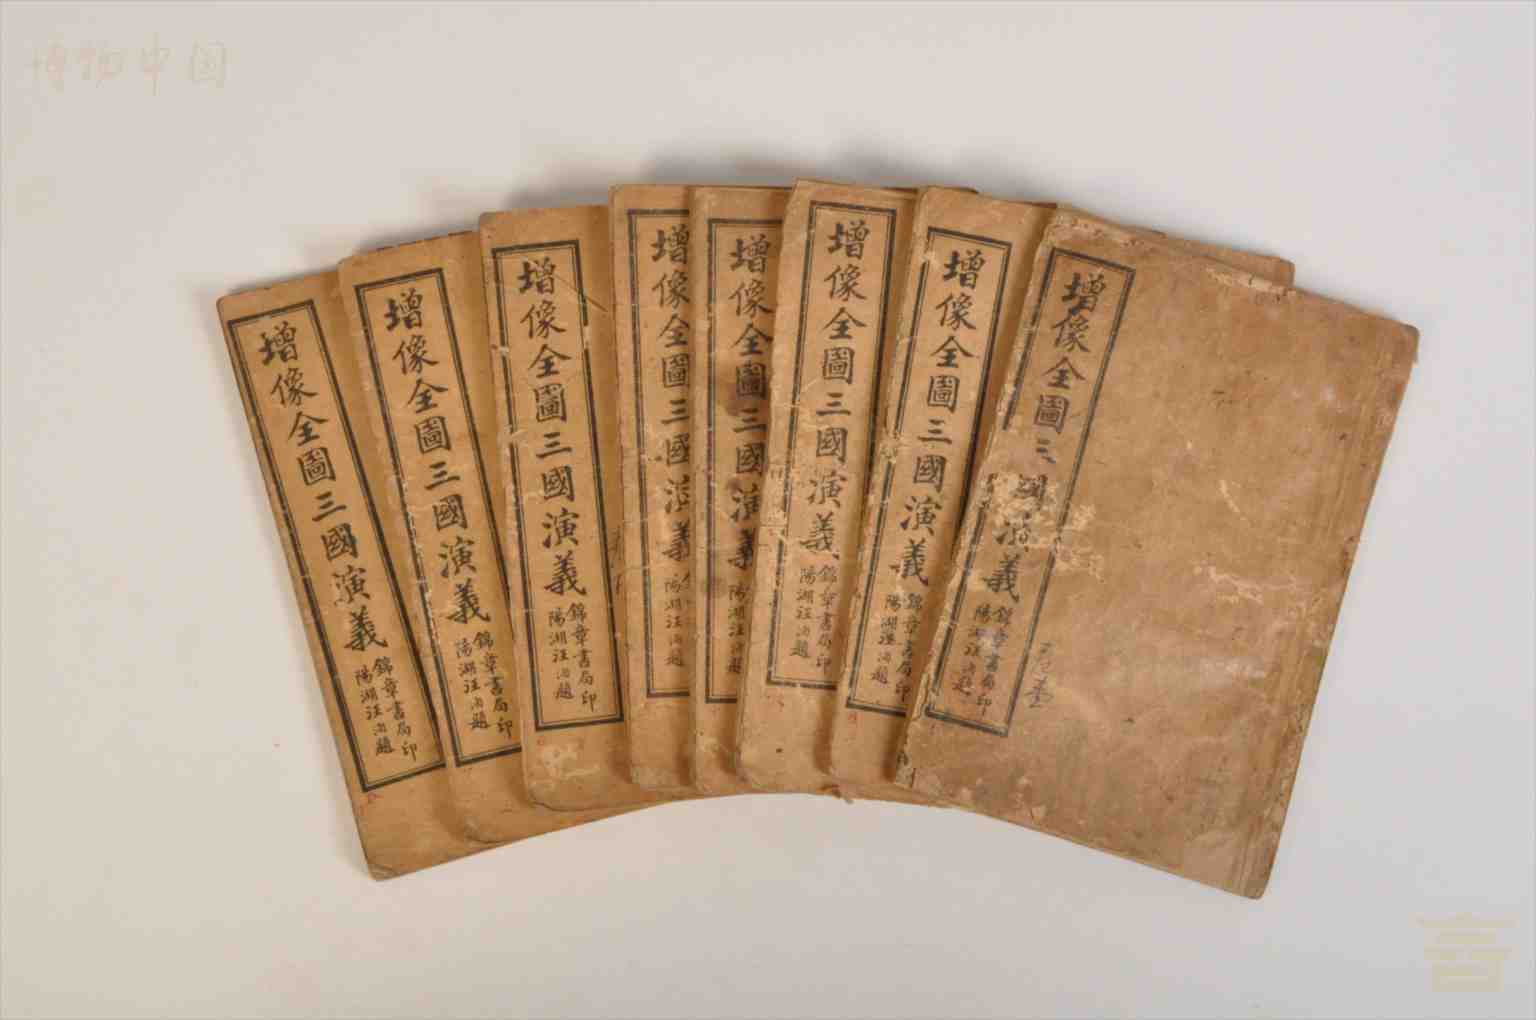 博物中国
增像全圖三國演義
錦章書局印
陽湖汪洵題
增像全圖三國演義
錦章書局印
陽湖汪洵題
增像全圖三國演義
錦章書局印
陽湖汪洵題
增像全圖三國演義
陽湖汪洵題
增像全圖三國演義
陽湖汪洵題
增像全圖三國演義
錦章書局印
陽湖汪洵題
增像全圖三國演義
錦章書局印
陽湖汪洵題
增像全圖三國演義
錦章書局印
陽湖汪洵題